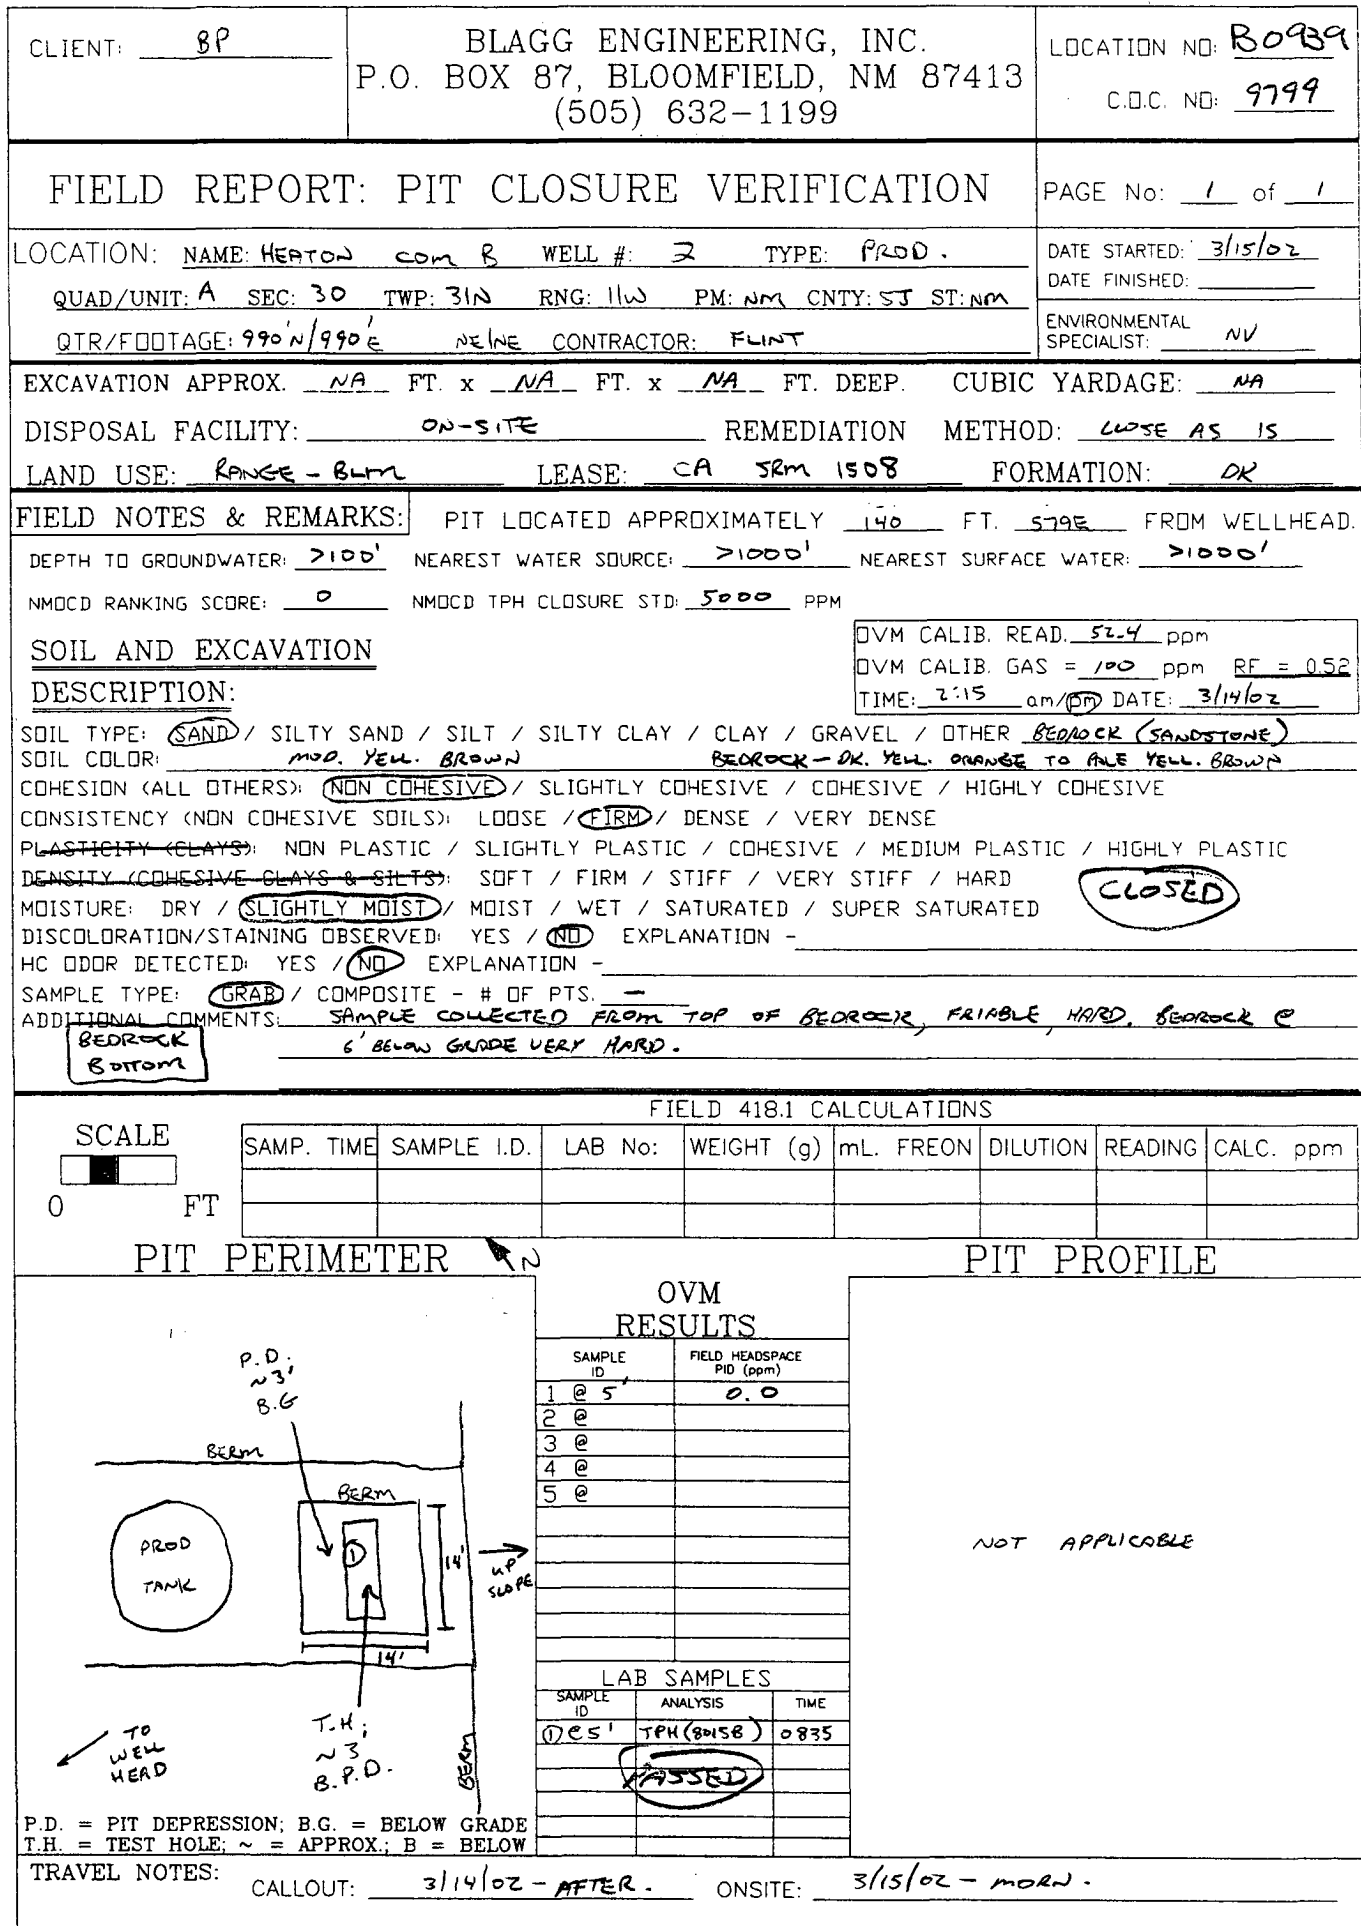 CLIENT: BP
BLAGG ENGINEERING, INC.
P.O. BOX 87, BLOOMFIELD, NM 87413
(505) 632-1199
LOCATION NO: B0939
C.O.C. NO: 9799
FIELD REPORT: PIT CLOSURE VERIFICATION
PAGE No: 1 of 1
LOCATION: NAME: HEATON COM B WELL #: 2 TYPE: PROD.
QUAD/UNIT: A SEC: 30 TWP: 31N RNG: 11W PM: NM CNTY: SJ ST: NM
QTR/FOOTAGE: 990'N/990'E NE/NE CONTRACTOR: FLINT
DATE STARTED: 3/15/02
DATE FINISHED:
ENVIRONMENTAL
SPECIALIST: NV
EXCAVATION APPROX. NA FT. x NA FT. x NA FT. DEEP. CUBIC YARDAGE: NA
DISPOSAL FACILITY: ON-SITE REMEDIATION METHOD: CLOSE AS IS
LAND USE: RANGE - BLM LEASE: CA SRM 1508 FORMATION: DK
FIELD NOTES & REMARKS: PIT LOCATED APPROXIMATELY 140 FT. S79E FROM WELLHEAD.
DEPTH TO GROUNDWATER: >100' NEAREST WATER SOURCE: >1000' NEAREST SURFACE WATER: >1000'
NMOCD RANKING SCORE: 0 NMOCD TPH CLOSURE STD: 5000 PPM
SOIL AND EXCAVATION
DESCRIPTION:
OVM CALIB. READ. 52.4 ppm
OVM CALIB. GAS = 100 ppm RF = 0.52
TIME: 2:15 am/pm DATE: 3/14/02
SOIL TYPE: SAND / SILTY SAND / SILT / SILTY CLAY / CLAY / GRAVEL / OTHER BEDROCK (SANDSTONE)
SOIL COLOR: MOD. YELL. BROWN BEDROCK - DK. YELL. ORANGE TO PALE YELL. BROWN
COHESION (ALL OTHERS): NON COHESIVE / SLIGHTLY COHESIVE / COHESIVE / HIGHLY COHESIVE
CONSISTENCY (NON COHESIVE SOILS): LOOSE / FIRM / DENSE / VERY DENSE
PLASTICITY (CLAYS): NON PLASTIC / SLIGHTLY PLASTIC / COHESIVE / MEDIUM PLASTIC / HIGHLY PLASTIC
DENSITY (COHESIVE CLAYS & SILTS): SOFT / FIRM / STIFF / VERY STIFF / HARD
CLOSED
MOISTURE: DRY / SLIGHTLY MOIST / MOIST / WET / SATURATED / SUPER SATURATED
DISCOLORATION/STAINING OBSERVED: YES / NO EXPLANATION -
HC ODOR DETECTED: YES / NO EXPLANATION -
SAMPLE TYPE: GRAB / COMPOSITE - # OF PTS. —
ADDITIONAL COMMENTS: SAMPLE COLLECTED FROM TOP OF BEDROCK, FRIABLE, HARD. BEDROCK @
6' BELOW GRADE VERY HARD.
BEDROCK
BOTTOM
FIELD 418.1 CALCULATIONS
SCALE
0 FT
SAMP. TIME SAMPLE I.D. LAB No: WEIGHT (g) mL. FREON DILUTION READING CALC. ppm
PIT PERIMETER N
PIT PROFILE
P.D.
~3'
B.G
BERM
BERM
PROD
TANK
1
14'
14'
UP
SLOPE
TO
WELL
HEAD
T.H.
~3
B.P.D.
BERM
P.D. = PIT DEPRESSION; B.G. = BELOW GRADE
T.H. = TEST HOLE; ~ = APPROX.; B = BELOW
OVM
RESULTS
SAMPLE ID FIELD HEADSPACE PID (ppm)
1 @ 5' 0.0
2 @
3 @
4 @
5 @
LAB SAMPLES
SAMPLE ID ANALYSIS TIME
① @ 5' TPH (8015B) 0835
PASSED
NOT APPLICABLE
TRAVEL NOTES: CALLOUT: 3/14/02 - AFTER. ONSITE: 3/15/02 - MORN.